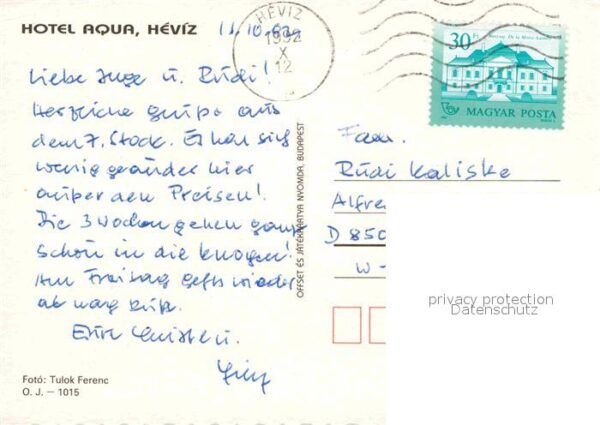 HOTEL AQUA, HÉVÍZ
HÉVÍZ
1992
X
12
30 Ft
MAGYAR POSTA
Liebe Inge u. Rudi!
Herzliche Grüße aus
dem 7. Stock. Es hat sich
wenig geändert hier
außer den Preisen!
Die 3 Wochen gehen ganz
schön in die Knochen!
Am Freitag geht's wieder
ab nach
Eure
Fam.
Rüdi Kaliske
Alfre
D 850
W-
OFFSET ÉS JÁTÉKKÁRTYA NYOMDA, BUDAPEST
privacy protection
Datenschutz
Fotó: Tulok Ferenc
O. J. — 1015